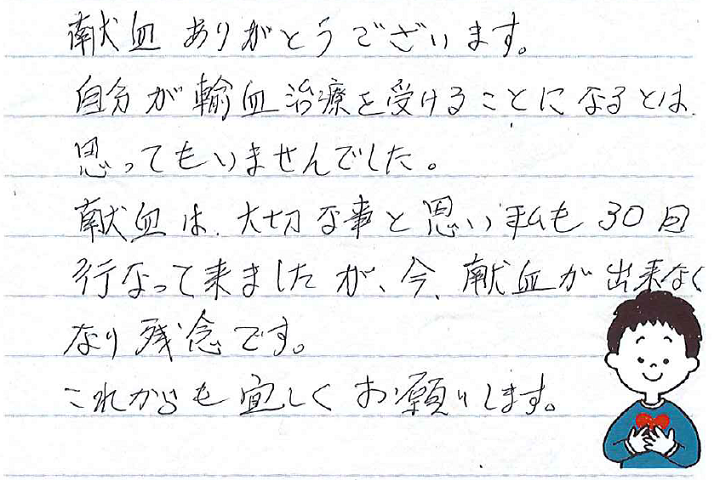 献血ありがとうございます。
自分が輸血治療を受けることになるとは、
思ってもいませんでした。
献血は、大切な事と思い私も30回
行なって来ましたが、今、献血が出来なく
なり残念です。
これからも宜しくお願いします。